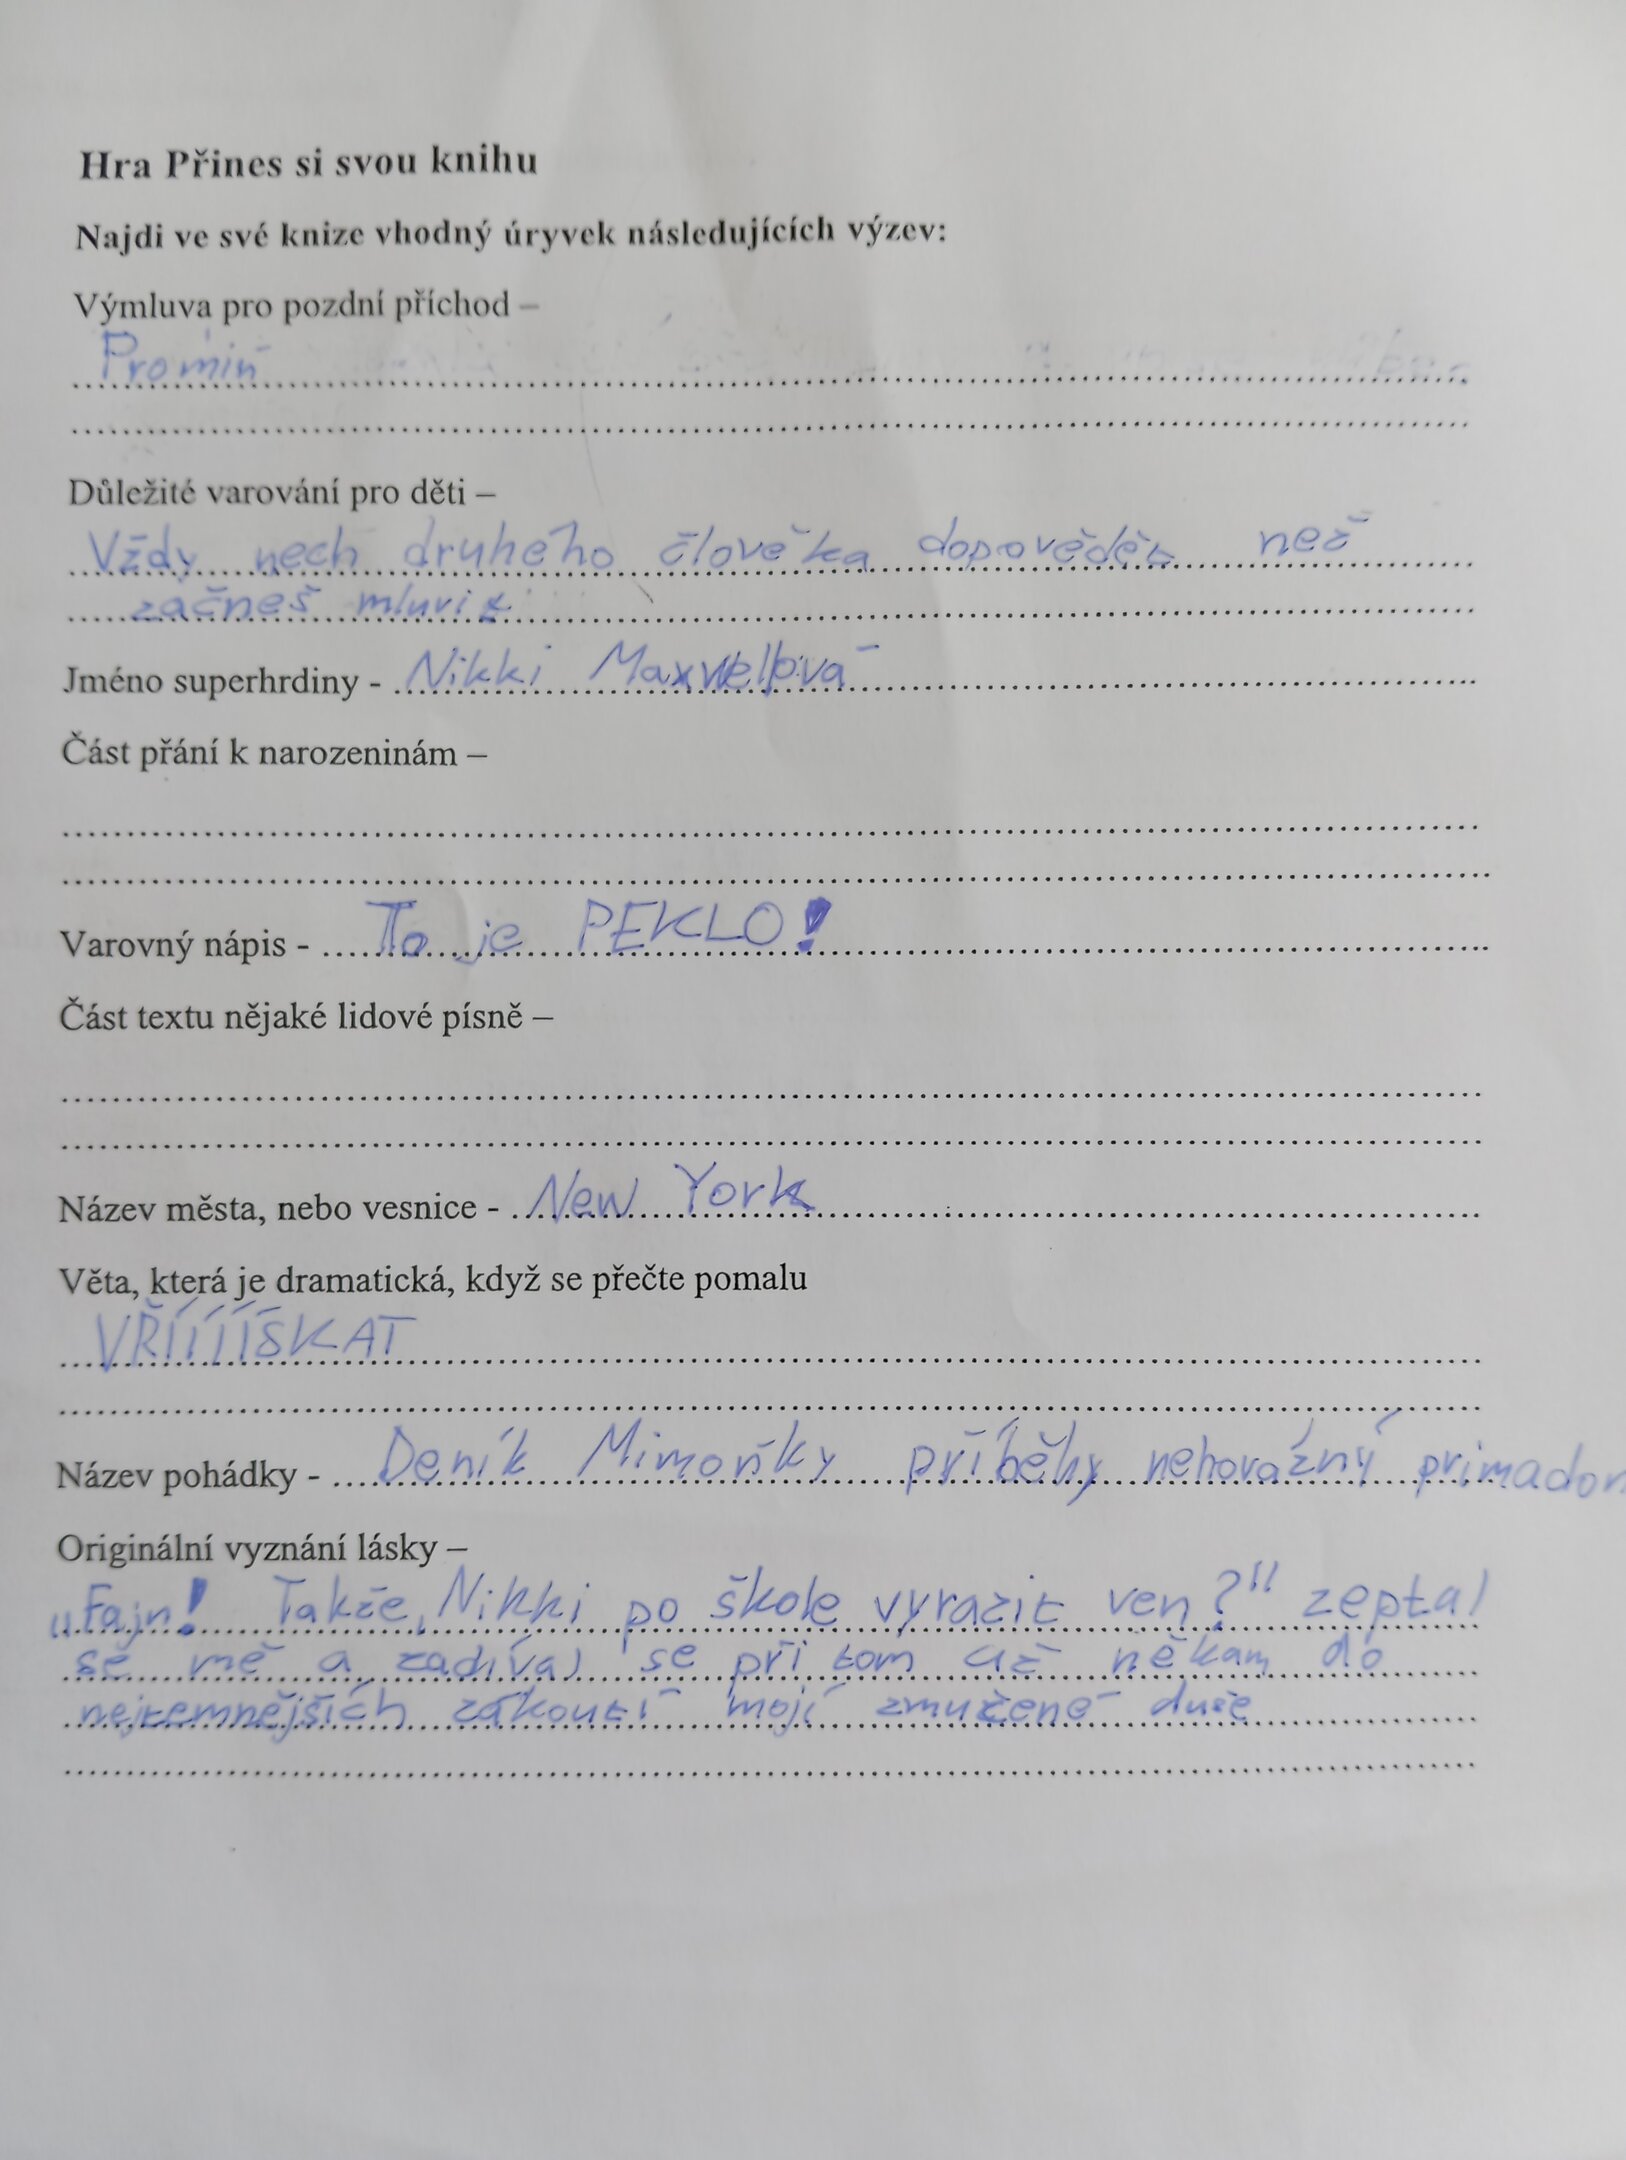 Hra Přines si svou knihu
Najdi ve své knize vhodný úryvek následujících výzev:
Výmluva pro pozdní příchod –
Promiň
Důležité varování pro děti –
Vždy nech druhého člověka dopovědět než
začneš mluvit
Jméno superhrdiny - Nikki Maxwellová
Část přání k narozeninám –
Varovný nápis - To je PEKLO!
Část textu nějaké lidové písně –
Název města, nebo vesnice - New York
Věta, která je dramatická, když se přečte pomalu
VŘÍÍÍÍŠKAT
Název pohádky - Deník Mimoňky příběhy nehovážný primadon
Originální vyznání lásky –
„Fajn! Takže, Nikki po škole vyrazit ven?" zeptal
se mě a zadíval se při tom až někam do
nejtemnějších zákoutí mojí zmučené duše